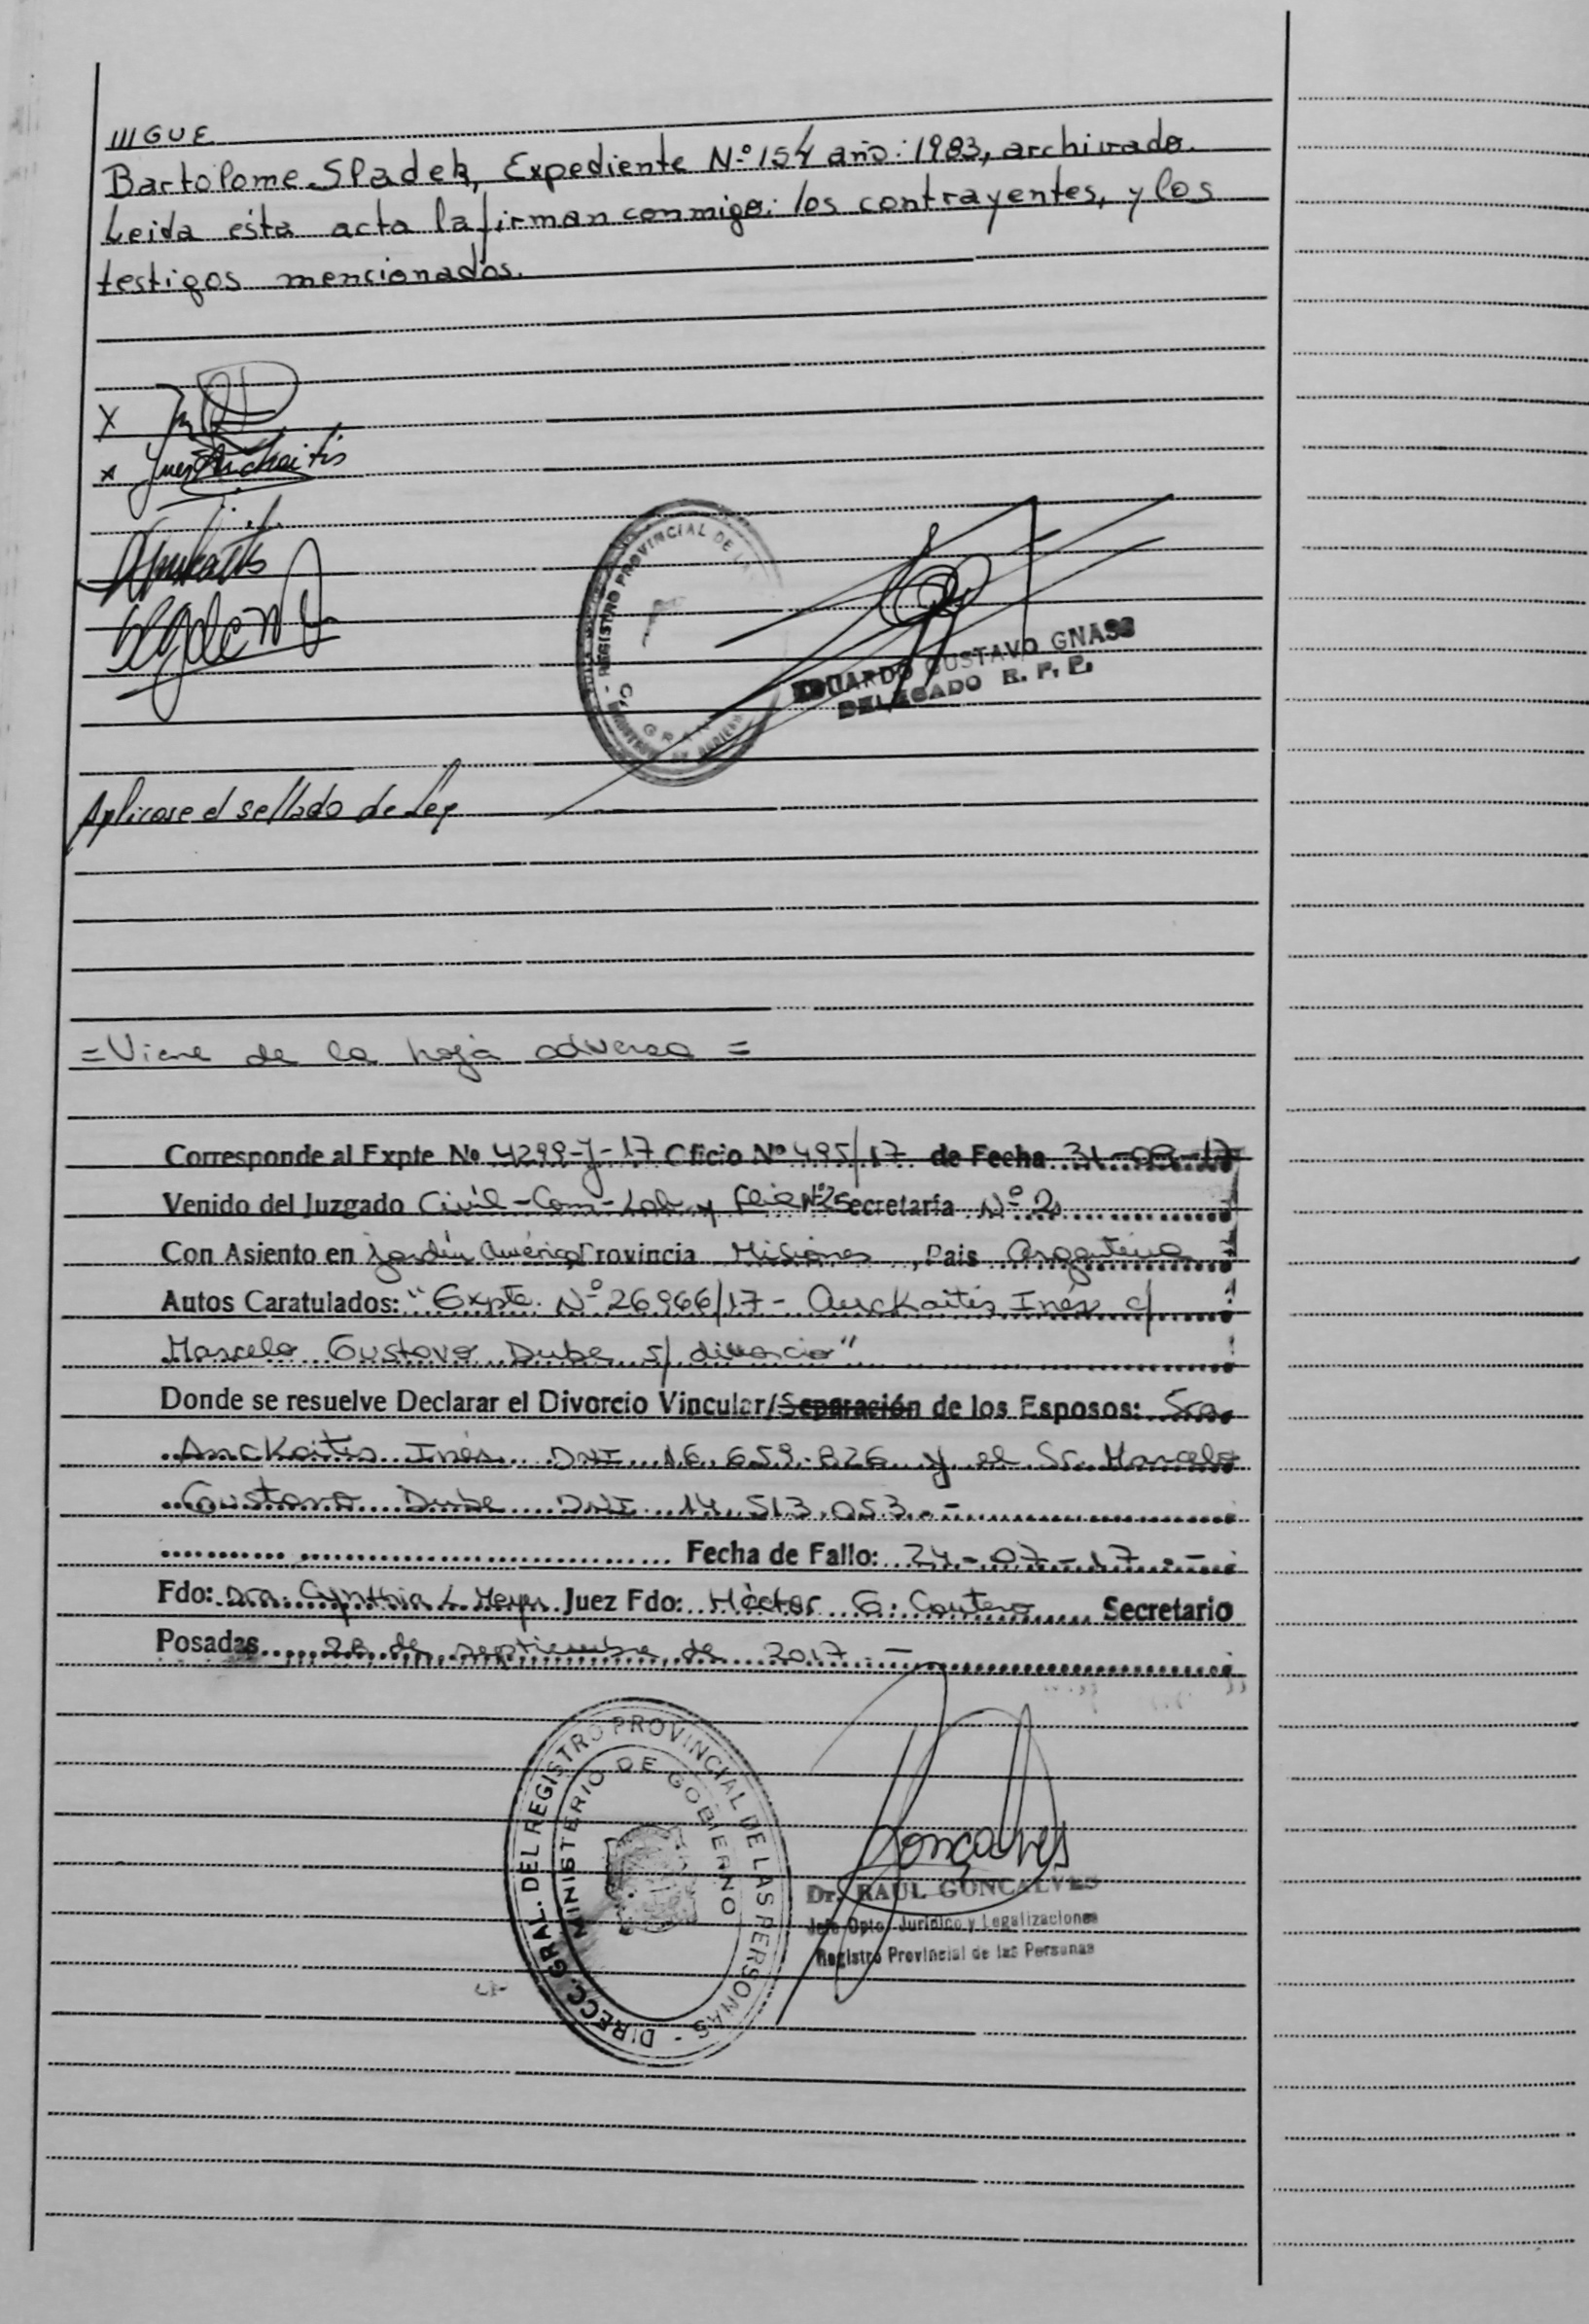 III GUE
Bartolome Sladek, Expediente Nº 154 año: 1983, archivado.
Leida ésta acta la firman conmigo: los contrayentes, y los
testigos mencionados.
X
x Ines Anckaitis
REGISTRO PROVINCIAL DE LA
EDUARDO GUSTAVO GNASS
DELEGADO R. P. P.
Aplicase el sellado de Ley
= Viene de la hoja adversa =
Corresponde al Expte Nº 4299-J-17 Oficio Nº 495/17 de Fecha 31-08-17
Venido del Juzgado Civil-Com-Lab. y Flia Nº2 Secretaría Nº 2
Con Asiento en Jardín América Provincia Misiones, Pais Argentina
Autos Caratulados: "Expte. Nº 26966/17 - Anckaitis Inés c/
Marcelo Gustavo Dube s/ divorcio"
Donde se resuelve Declarar el Divorcio Vincular/Separación de los Esposos: Sra.
Anckaitis Inés DNI 16.659.826 y el Sr. Marcelo
Gustavo Dube DNI 14.513.053.-
Fecha de Fallo: 24-07-17.-
Fdo: Dra. Cynthia L. Juez Fdo: Héctor G. Secretario
Posadas, 28 de septiembre de 2017.-
DIRECC. GRAL. DEL REGISTRO PROVINCIAL DE LAS PERSONAS -
MINISTERIO DE GOBIERNO
Goncalves
Dr. RAUL GONCALVES
Jefe Dpto. Jurídico y Legalizaciones
Registro Provincial de las Personas